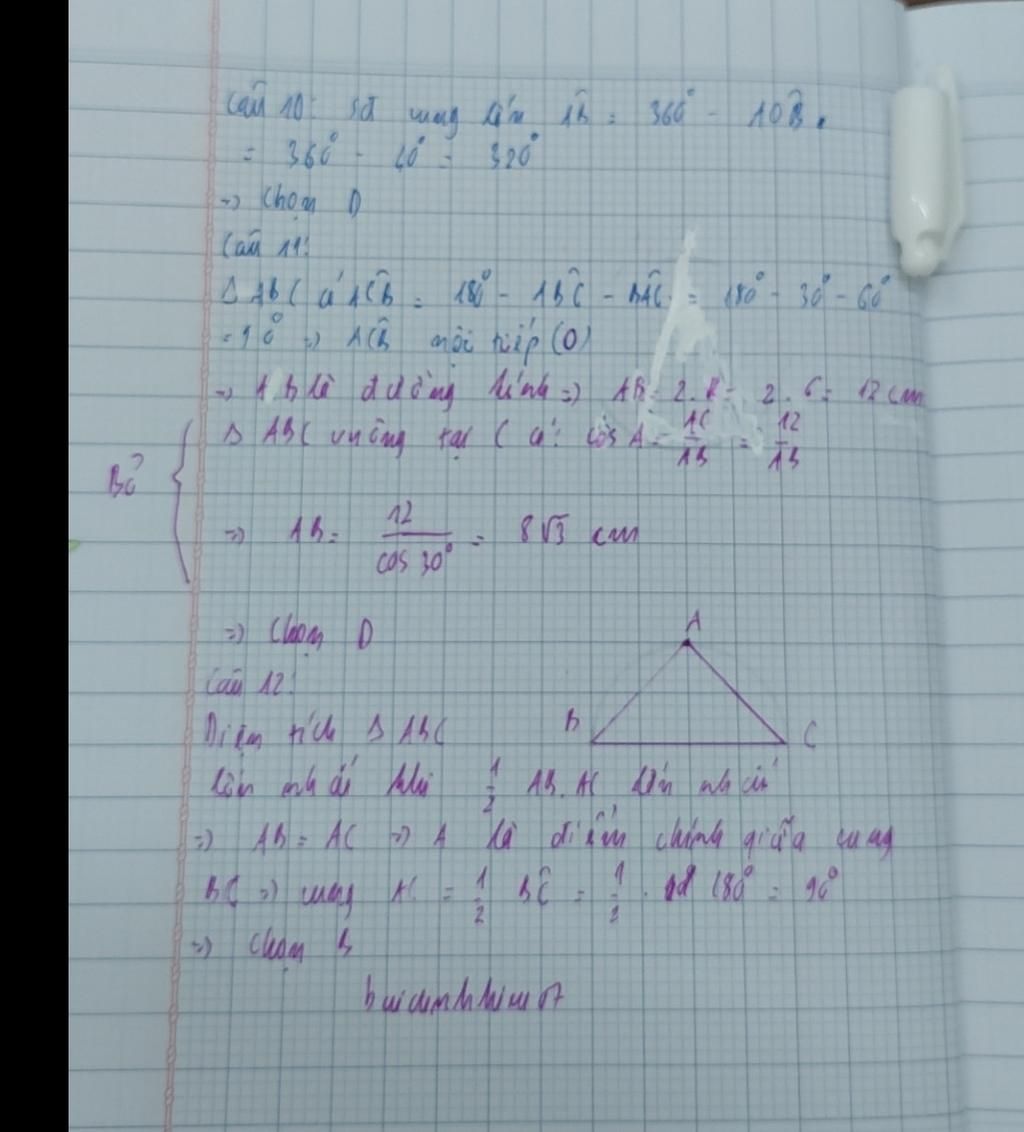 Câu 10: sđ cung lớn AB = 360° - AÔB.
= 360° - 40° = 320°
=> Chọn D
Câu 11:
Δ ABC có AĈB = 180° - AB̂C - BÂC = 180° - 30° - 60°
= 90° => AĈB nội tiếp (O)
=> AB là đường kính => AB = 2.R = 2.6 = 12 cm
Δ ABC vuông tại C có: cos A = AC/AB = 12/AB
Bỏ
=> AB = 12/cos 30° = 8√3 cm
=> Chọn D
A
Câu 12:
Diện tích Δ ABC
B C
lớn nhất khi 1/2 AB. AC lớn nhất
=> AB = AC => A là điểm chính giữa cung
BC => cung AC = 1/2 BC = 1/2 . sđ 180° = 90°
=> Chọn B